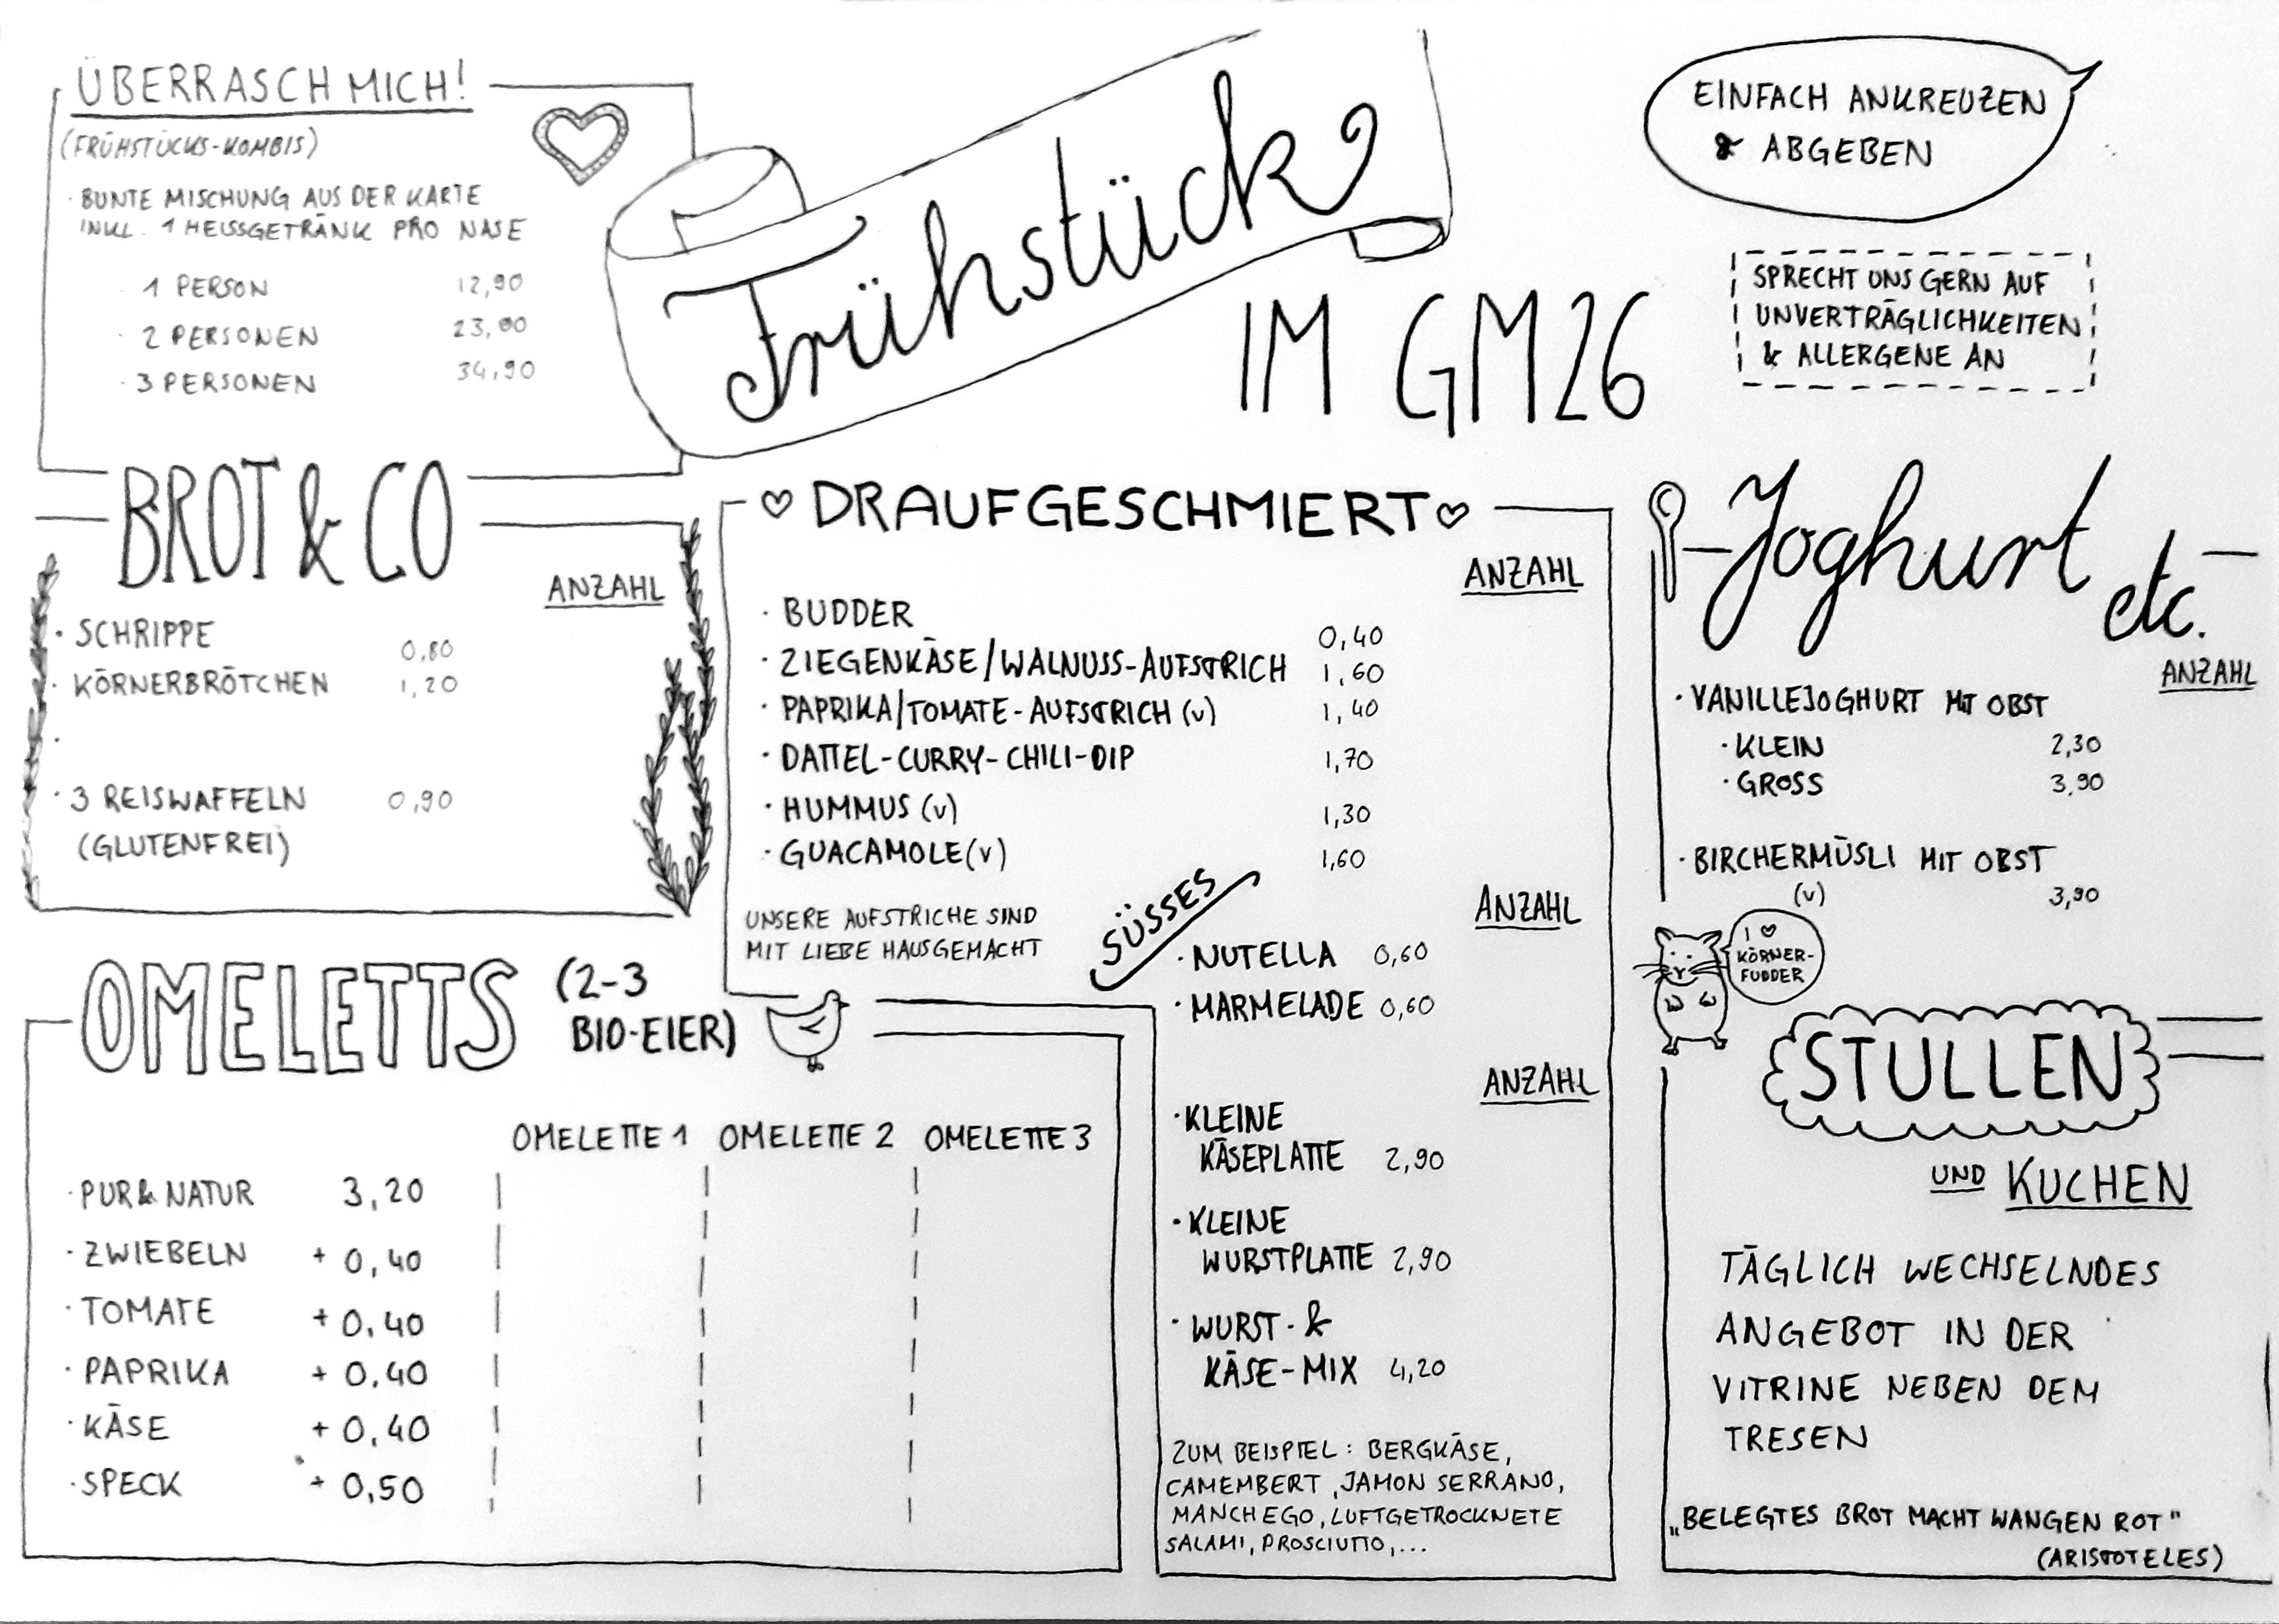 ÜBERRASCH MICH!
(FRÜHSTÜCKS-KOMBIS)
· BUNTE MISCHUNG AUS DER KARTE
INKL. 1 HEISSGETRÄNK PRO NASE
· 1 PERSON 12,90
· 2 PERSONEN 23,90
· 3 PERSONEN 34,90
Frühstück
IM GM26
EINFACH ANKREUZEN
& ABGEBEN
SPRECHT UNS GERN AUF
UNVERTRÄGLICHKEITEN
& ALLERGENE AN
BROT & CO
ANZAHL
· SCHRIPPE 0,80
· KÖRNERBRÖTCHEN 1,20
·
· 3 REISWAFFELN 0,90
(GLUTENFREI)
♡ DRAUFGESCHMIERT ♡
ANZAHL
· BUDDER 0,40
· ZIEGENKÄSE/WALNUSS-AUFSTRICH 1,60
· PAPRIKA/TOMATE-AUFSTRICH (v) 1,40
· DATTEL-CURRY-CHILI-DIP 1,70
· HUMMUS (v) 1,30
· GUACAMOLE (v) 1,60
UNSERE AUFSTRICHE SIND
MIT LIEBE HAUSGEMACHT
SÜSSES
ANZAHL
· NUTELLA 0,60
· MARMELADE 0,60
ANZAHL
· KLEINE
KÄSEPLATTE 2,90
· KLEINE
WURSTPLATTE 2,90
· WURST- &
KÄSE-MIX 4,20
ZUM BEISPIEL: BERGKÄSE,
CAMEMBERT, JAMON SERRANO,
MANCHEGO, LUFTGETROCKNETE
SALAMI, PROSCIUTTO,...
OMELETTS (2-3
BIO-EIER)
OMELETTE 1 OMELETTE 2 OMELETTE 3
· PUR & NATUR 3,20
· ZWIEBELN + 0,40
· TOMATE + 0,40
· PAPRIKA + 0,40
· KÄSE + 0,40
· SPECK + 0,50
Joghurt
etc.
ANZAHL
· VANILLEJOGHURT MIT OBST
· KLEIN 2,30
· GROSS 3,90
· BIRCHERMÜSLI MIT OBST
(v) 3,90
I ♡
KÖRNER-
FUDDER
STULLEN
UND KUCHEN
TÄGLICH WECHSELNDES
ANGEBOT IN DER
VITRINE NEBEN DEM
TRESEN
„BELEGTES BROT MACHT WANGEN ROT"
(ARISTOTELES)